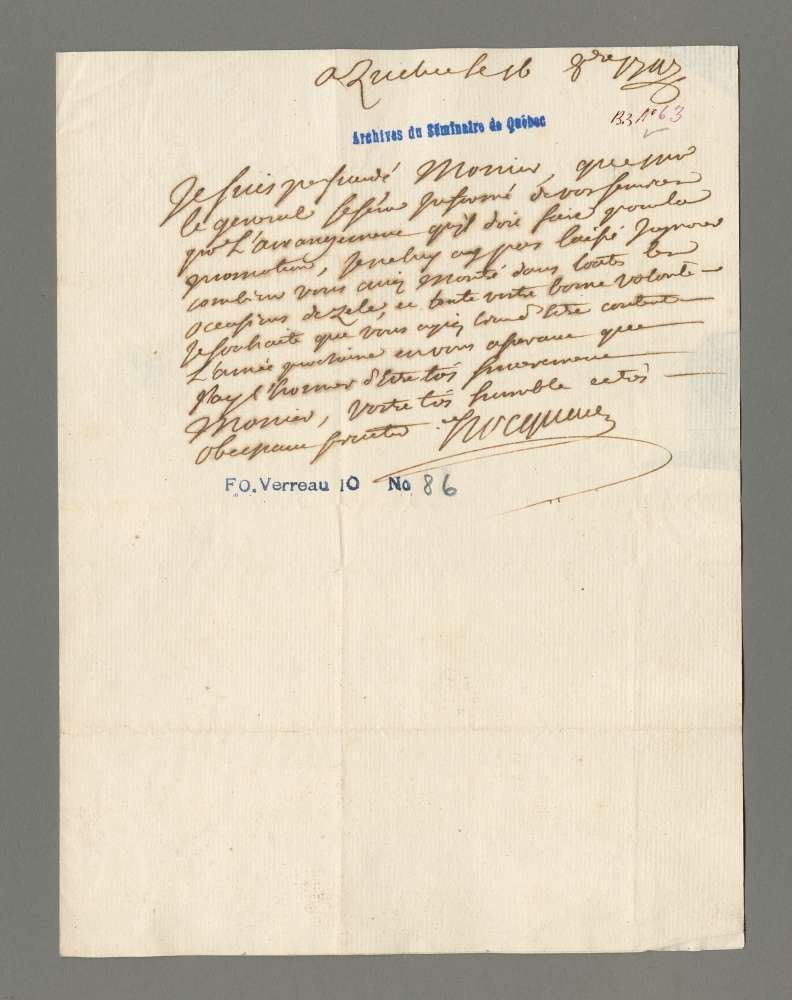 a Quebec le 16 8bre
Archives du Séminaire de Québec
B3 No 63
Je suis persuadé Monsieur, que
le general informé de vos services
L'arrangement qu'il doit faire pour la
promotion, Je ne luy ay pas laissé Ignorer
combien vous aviez Montré dans touts les
occasions de Zele, et toute votre bonne volonté
Je souhaite que vous ayiez lieu d'etre content
L'année prochaine en vous assurant que
J'ay l'honneur d'Etre tres sincerement
Monsieur, votre tres humble et tres
obeissant serviteur Hocquart
F.O. Verreau 10 No 86